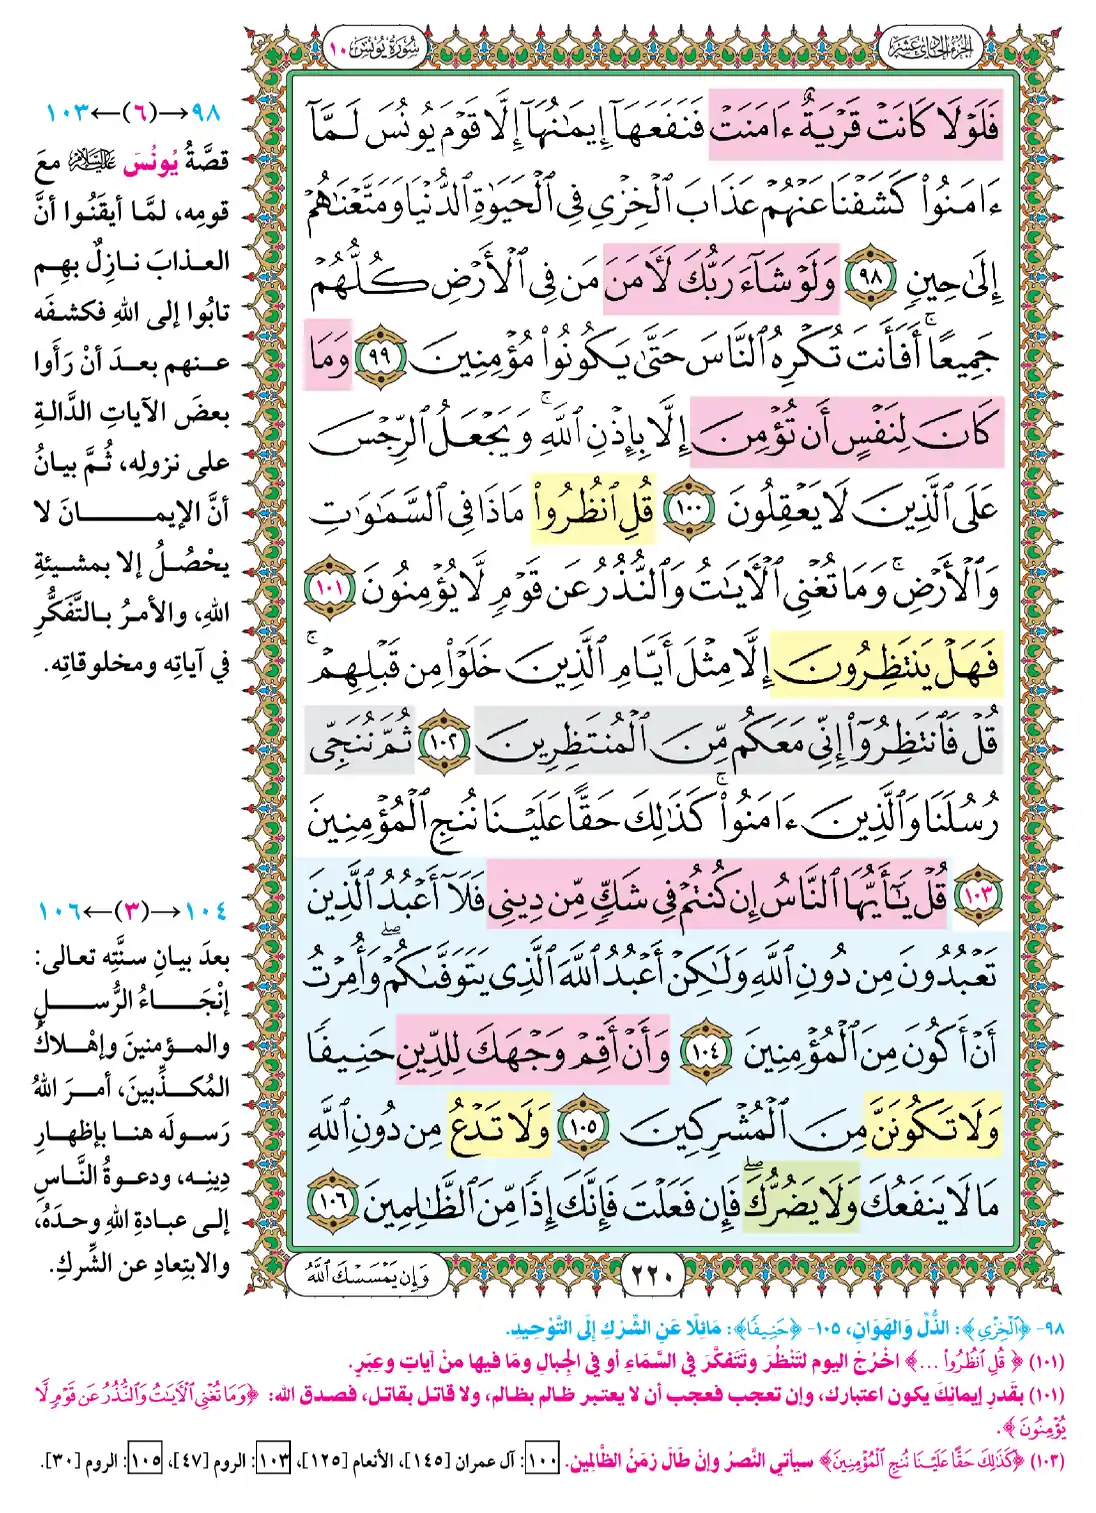 الجزء الحادي عشر
سورة يونس ١٠
فَلَوْلَا كَانَتْ قَرْيَةٌ ءَامَنَتْ فَنَفَعَهَآ إِيمَـٰنُهَآ إِلَّا قَوْمَ يُونُسَ لَمَّآ
ءَامَنُوا۟ كَشَفْنَا عَنْهُمْ عَذَابَ ٱلْخِزْىِ فِى ٱلْحَيَوٰةِ ٱلدُّنْيَا وَمَتَّعْنَـٰهُمْ
إِلَىٰ حِينٍ ٩٨ وَلَوْ شَآءَ رَبُّكَ لَـَٔامَنَ مَن فِى ٱلْأَرْضِ كُلُّهُمْ
جَمِيعًا ۚ أَفَأَنتَ تُكْرِهُ ٱلنَّاسَ حَتَّىٰ يَكُونُوا۟ مُؤْمِنِينَ ٩٩ وَمَا
كَانَ لِنَفْسٍ أَن تُؤْمِنَ إِلَّا بِإِذْنِ ٱللَّهِ ۚ وَيَجْعَلُ ٱلرِّجْسَ
عَلَى ٱلَّذِينَ لَا يَعْقِلُونَ ١٠٠ قُلِ ٱنظُرُوا۟ مَاذَا فِى ٱلسَّمَـٰوَٰتِ
وَٱلْأَرْضِ ۚ وَمَا تُغْنِى ٱلْـَٔايَـٰتُ وَٱلنُّذُرُ عَن قَوْمٍ لَّا يُؤْمِنُونَ ١٠١
فَهَلْ يَنتَظِرُونَ إِلَّا مِثْلَ أَيَّامِ ٱلَّذِينَ خَلَوْا۟ مِن قَبْلِهِمْ ۚ
قُلْ فَٱنتَظِرُوٓا۟ إِنِّى مَعَكُم مِّنَ ٱلْمُنتَظِرِينَ ١٠٢ ثُمَّ نُنَجِّى
رُسُلَنَا وَٱلَّذِينَ ءَامَنُوا۟ ۚ كَذَٰلِكَ حَقًّا عَلَيْنَا نُنجِ ٱلْمُؤْمِنِينَ
١٠٣ قُلْ يَـٰٓأَيُّهَا ٱلنَّاسُ إِن كُنتُمْ فِى شَكٍّ مِّن دِينِى فَلَآ أَعْبُدُ ٱلَّذِينَ
تَعْبُدُونَ مِن دُونِ ٱللَّهِ وَلَـٰكِنْ أَعْبُدُ ٱللَّهَ ٱلَّذِى يَتَوَفَّىٰكُمْ ۖ وَأُمِرْتُ
أَنْ أَكُونَ مِنَ ٱلْمُؤْمِنِينَ ١٠٤ وَأَنْ أَقِمْ وَجْهَكَ لِلدِّينِ حَنِيفًا
وَلَا تَكُونَنَّ مِنَ ٱلْمُشْرِكِينَ ١٠٥ وَلَا تَدْعُ مِن دُونِ ٱللَّهِ
مَا لَا يَنفَعُكَ وَلَا يَضُرُّكَ ۖ فَإِن فَعَلْتَ فَإِنَّكَ إِذًا مِّنَ ٱلظَّـٰلِمِينَ ١٠٦
٢٢٠
وَإِن يَمْسَسْكَ ٱللَّهُ
٩٨→(٦)←١٠٣
قصَّةُ يُونُسَ عليه السلام معَ
قومِه، لمَّا أيقَنُوا أنَّ
العـذابَ نـازِلٌ بهِـم
تابُوا إلى اللهِ فكشفَه
عـنهم بعـدَ أنْ رَأَوا
بعضَ الآياتِ الدَّالـةِ
على نزولِه، ثُمَّ بيانُ
أنَّ الإيمـانَ لا
يحْصُـلُ إلا بمشـيئةِ
اللهِ، والأمـرُ بـالتَّفَكُّرِ
في آياتِه ومخلوقاتِه.
١٠٤→(٣)←١٠٦
بعدَ بيانِ سنَّتِه تعالى:
إنْجَـاءُ الرُّسـلِ
والمـؤمنينَ وإهْـلاكُ
المُكـذِّبينَ، أمـرَ اللهُ
رَسـولَه هنـا بإظهـارِ
دِينِـه، ودعـوةُ النَّـاسِ
إلـى عبـادةِ اللهِ وحـدَهُ،
والابتِعادِ عن الشِّركِ.
٩٨- ﴿ٱلْخِزْىِ﴾: الذُّلِّ وَالهَوَانِ، ١٠٥- ﴿حَنِيفًا﴾: مَائِلًا عَنِ الشِّرْكِ إِلَى التَّوْحِيدِ.
(١٠١) ﴿قُلِ ٱنظُرُوا۟ ...﴾ اخْرُج اليوم لتَنْظُرَ وتَتَفكَّرَ في السَّمَاءِ أو في الجِبالِ ومَا فيها منْ آياتٍ وعِبَرٍ.
(١٠١) بقَدرِ إيمانِكَ يكون اعتبارك، وإن تعجب فعجب أن لا يعتبر ظالم بظالم، ولا قاتل بقاتل، فصدق الله: ﴿وَمَا تُغْنِى ٱلْـَٔايَـٰتُ وَٱلنُّذُرُ عَن قَوْمٍ لَّا
يُؤْمِنُونَ﴾.
(١٠٣) ﴿كَذَٰلِكَ حَقًّا عَلَيْنَا نُنجِ ٱلْمُؤْمِنِينَ﴾ سيأتي النَّصرُ وإنْ طَالَ زمَنُ الظَّالِمين. ١٠٠: آل عمران [١٤٥]، الأنعام [١٢٥]، ١٠٣: الروم [٤٧]، ١٠٥: الروم [٣٠].